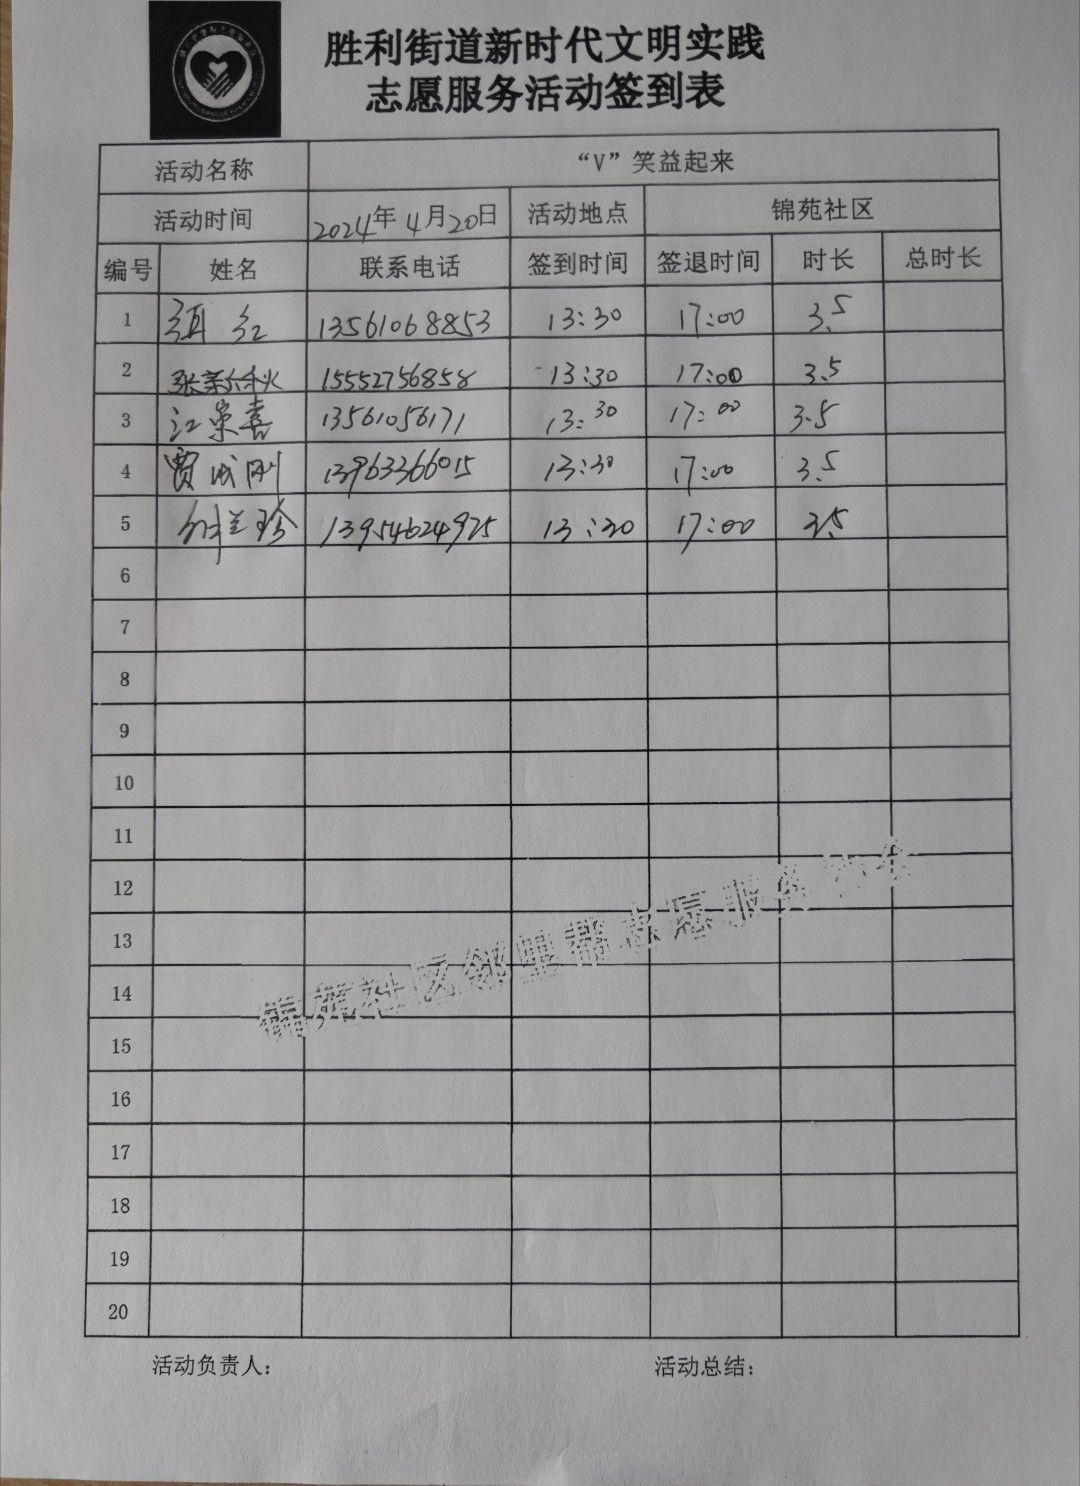 胜利街道新时代文明实践
志愿服务活动签到表
活动名称 “V”笑益起来
活动时间 2024年4月20日 活动地点 锦苑社区
编号 姓名 联系电话 签到时间 签退时间 时长 总时长
1 红 13561068853 13:30 17:00 3.5
2 张新秋 15552756858 13:30 17:00 3.5
3 江荣喜 13561056171 13:30 17:00 3.5
4 贾成刚 13963366015 13:30 17:00 3.5
5 兰珍 13954624975 13:30 17:00 3.5
6
7
8
9
10
11
12
13
14
15
16
17
18
19
20
锦苑社区邻里帮志愿服务协会
活动负责人: 活动总结: